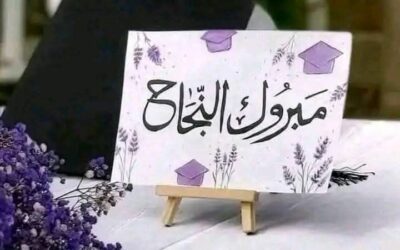 مَبرُوك النّجَاح